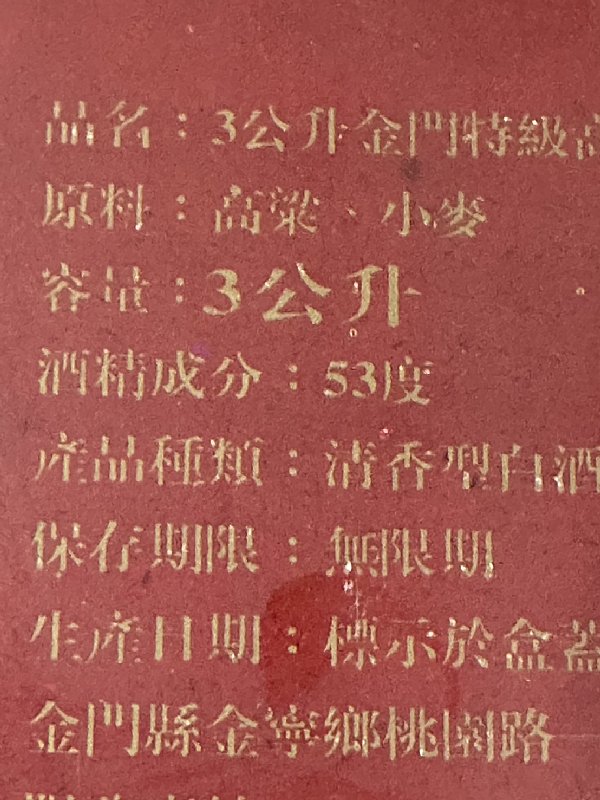 品名：3公升金門特級高
原料：高粱、小麥
容量：3公升
酒精成分：53度
產品種類：清香型白酒
保存期限：無限期
生產日期：標示於盒蓋
金門縣金寧鄉桃園路